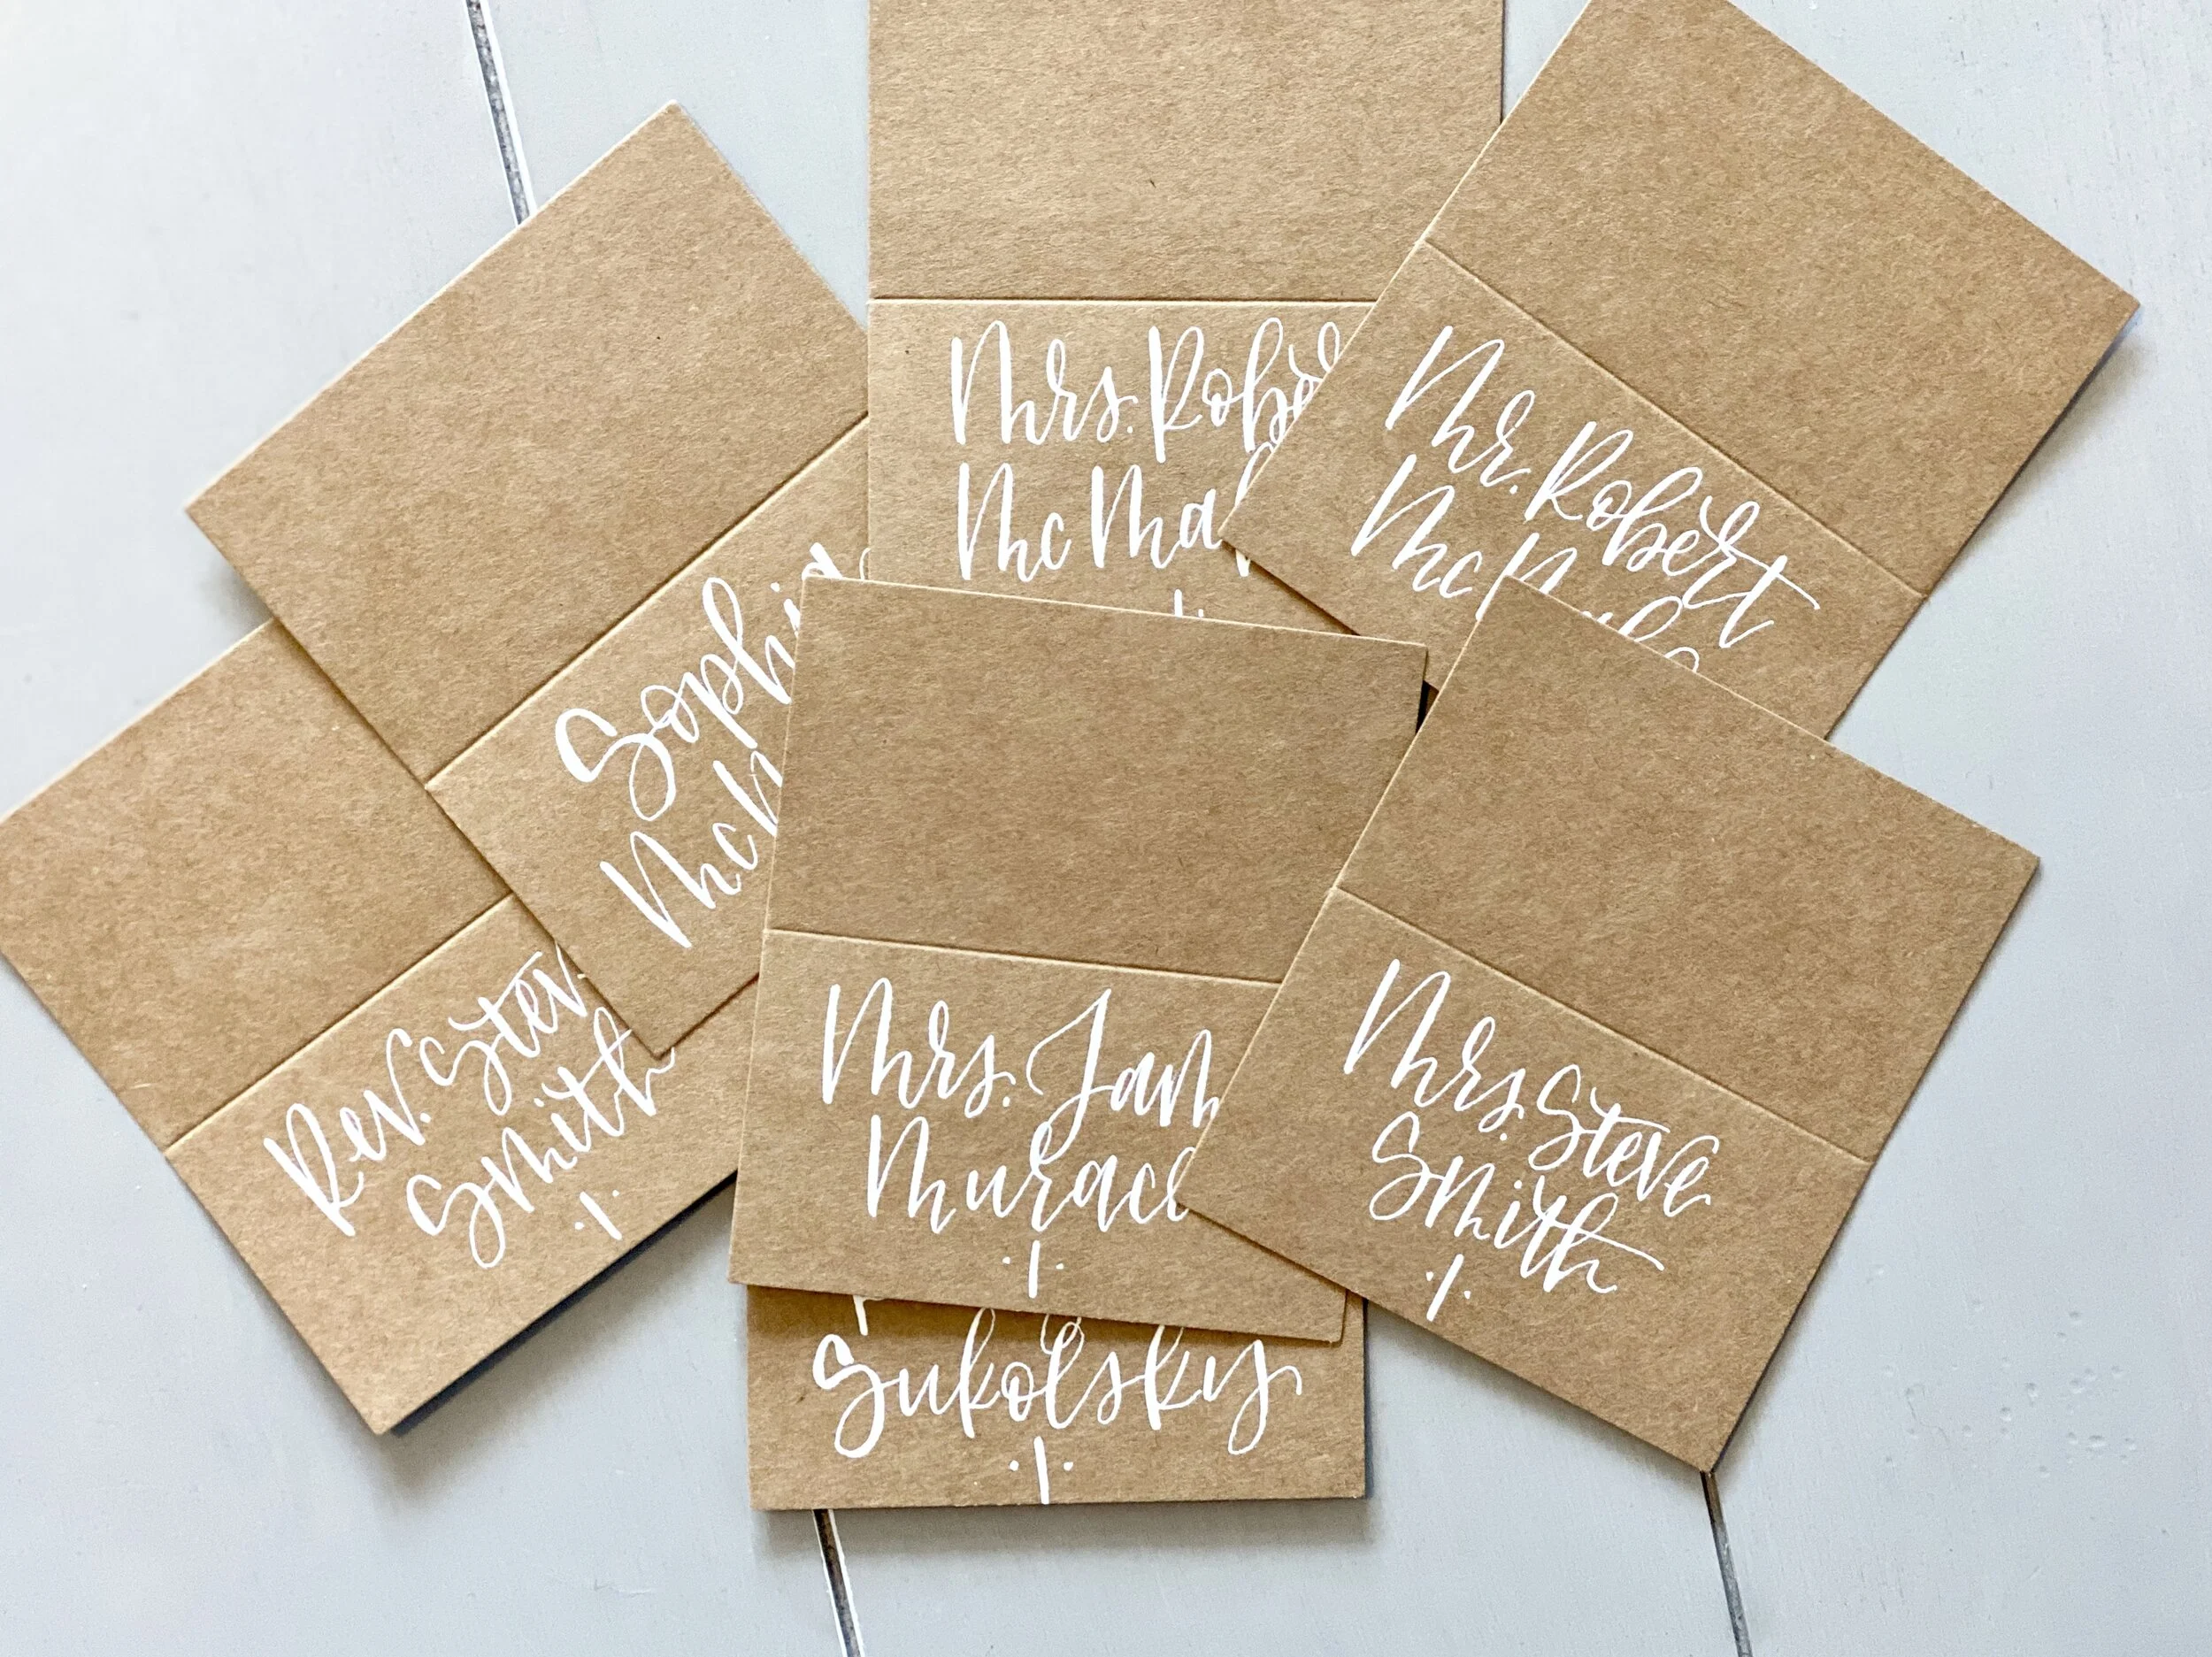 Mrs. Rob
Mc Ma
Mr. Robert
Mc
Sophia
Mc
Rev. Stev
Smith
·1·
Mrs. Jam
Murac
·1·
Mrs. Steve
Smith
·1·
Sukolsky
·1·